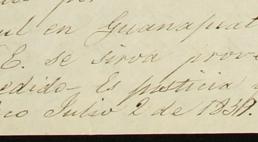 en Guanajuat
E. se sirva prov
edido. Es justicia
co Julio 2 de